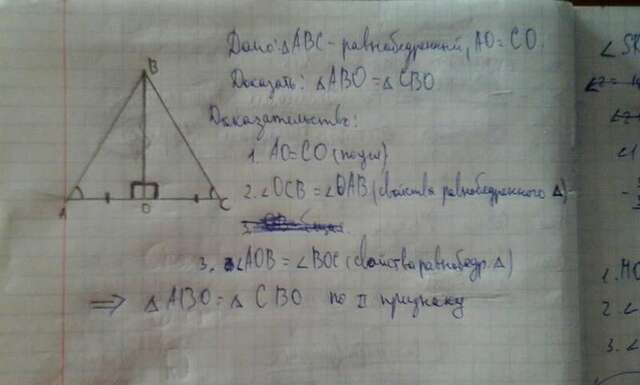 Дано: △ABC - равнобедренный, AO = CO.
Доказать: △ABO = △CBO
Доказательство:
1. AO = CO (по усл)
2. ∠OCB = ∠OAB (свойства равнобедренного △)
3. ∠AOB = ∠BOC (свойства равнобедр. △)
⟹ △ABO = △CBO по II признаку
B
A
O
C
∠SK
∠1
1. MO
2. ∠
3. ∠